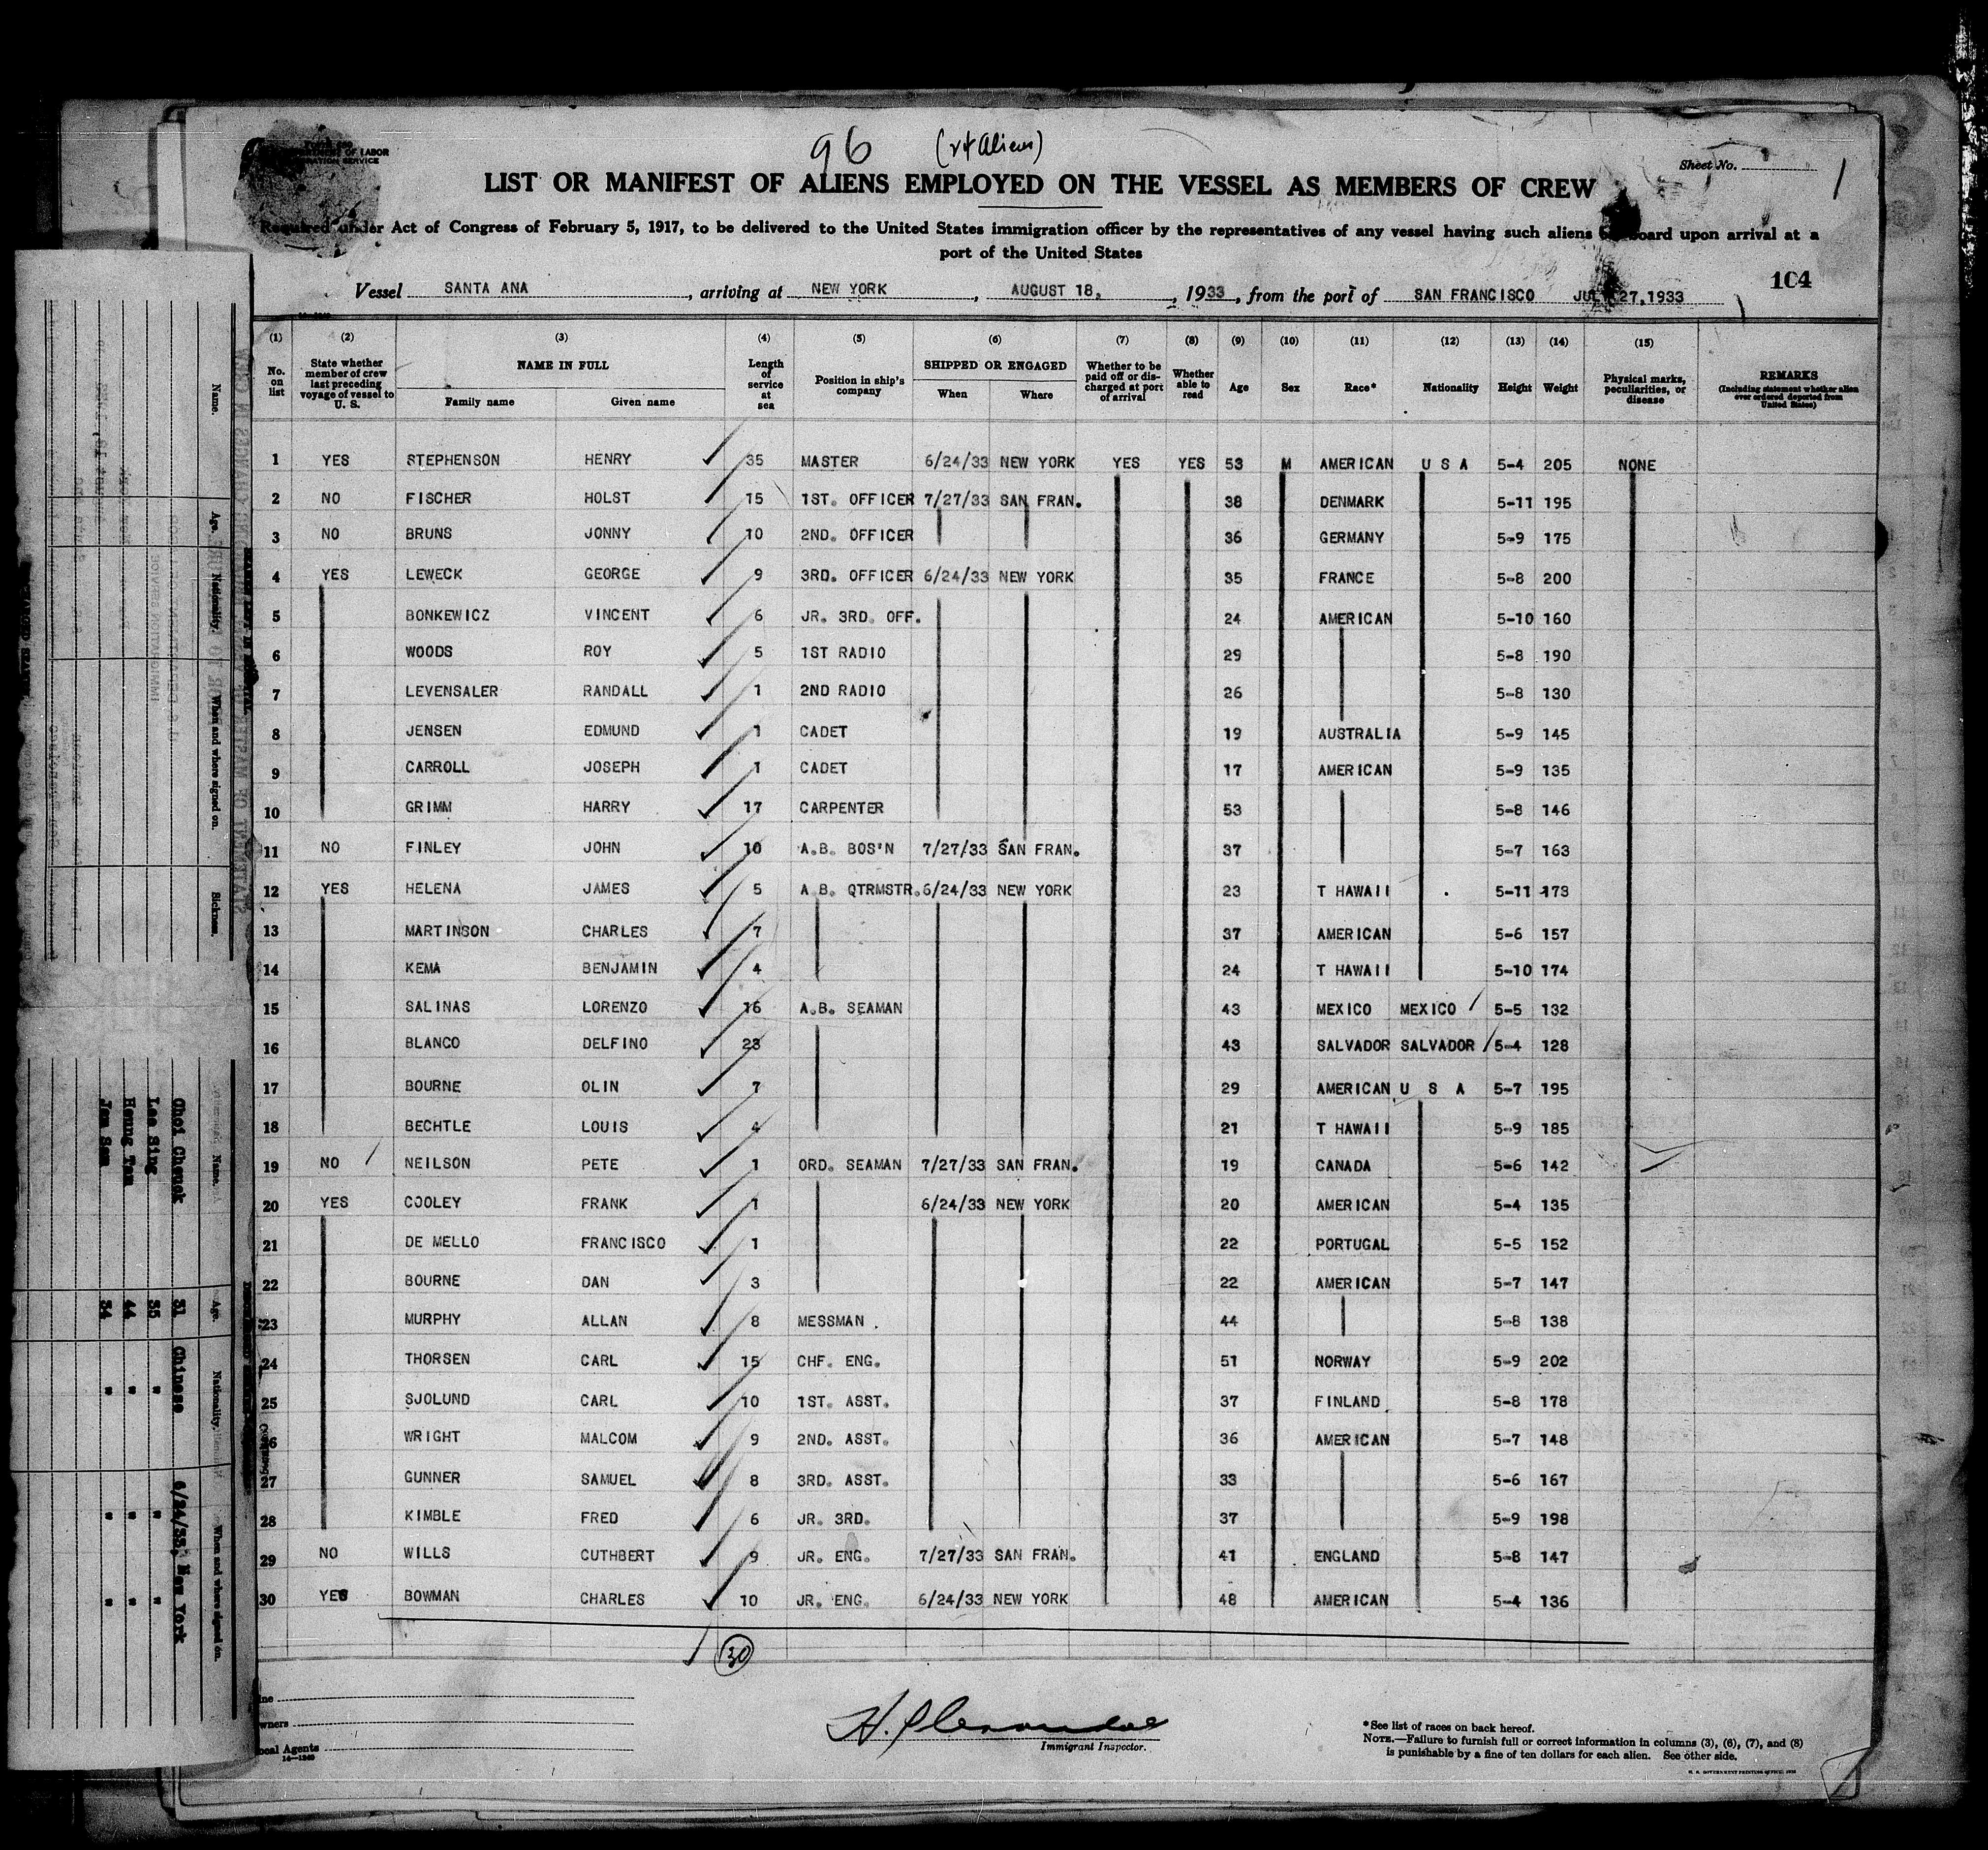 96 (24 Aliens)
Sheet No. 1
LIST OR MANIFEST OF ALIENS EMPLOYED ON THE VESSEL AS MEMBERS OF CREW
Required under Act of Congress of February 5, 1917, to be delivered to the United States immigration officer by the representatives of any vessel having such aliens on board upon arrival at a
port of the United States
104
Vessel SANTA ANA, arriving at NEW YORK, AUGUST 18, 1933, from the port of SAN FRANCISCO JULY 27,1933
(1) (2) (3) (4) (5) (6) (7) (8) (9) (10) (11) (12) (13) (14) (15)
No. on list State whether member of crew last preceding voyage of vessel to U. S. NAME IN FULL Family name Given name Length of service at sea Position in ship's company SHIPPED OR ENGAGED When Where Whether to be paid off or discharged at port of arrival Whether able to read Age Sex Race* Nationality Height Weight Physical marks, peculiarities, or disease REMARKS (Including statement whether alien ever ordered deported from United States)
1 YES STEPHENSON HENRY 35 MASTER 6/24/33 NEW YORK YES YES 53 M AMERICAN U S A 5-4 205 NONE
2 NO FISCHER HOLST 15 1ST. OFFICER 7/27/33 SAN FRAN. 38 DENMARK 5-11 195
3 NO BRUNS JONNY 10 2ND. OFFICER 36 GERMANY 5-9 175
4 YES LEWECK GEORGE 9 3RD. OFFICER 6/24/33 NEW YORK 35 FRANCE 5-8 200
5 BONKEWICZ VINCENT 6 JR. 3RD. OFF. 24 AMERICAN 5-10 160
6 WOODS ROY 5 1ST RADIO 29 5-8 190
7 LEVENSALER RANDALL 1 2ND RADIO 26 5-8 130
8 JENSEN EDMUND 1 CADET 19 AUSTRALIA 5-9 145
9 CARROLL JOSEPH 1 CADET 17 AMERICAN 5-9 135
10 GRIMM HARRY 17 CARPENTER 53 5-8 146
11 NO FINLEY JOHN 10 A.B. BOS'N 7/27/33 SAN FRAN. 37 5-7 163
12 YES HELENA JAMES 5 A.B. QTRMSTR. 6/24/33 NEW YORK 23 T HAWAII 5-11 173
13 MARTINSON CHARLES 7 37 AMERICAN 5-6 157
14 KEMA BENJAMIN 4 24 T HAWAII 5-10 174
15 SALINAS LORENZO 16 A.B. SEAMAN 43 MEXICO MEXICO 5-5 132
16 BLANCO DELFINO 23 43 SALVADOR SALVADOR 5-4 128
17 BOURNE OLIN 7 29 AMERICAN U S A 5-7 195
18 BECHTLE LOUIS 4 21 T HAWAII 5-9 185
19 NO NEILSON PETE 1 ORD. SEAMAN 7/27/33 SAN FRAN. 19 CANADA 5-6 142
20 YES COOLEY FRANK 1 6/24/33 NEW YORK 20 AMERICAN 5-4 135
21 DE MELLO FRANCISCO 1 22 PORTUGAL 5-5 152
22 BOURNE DAN 3 22 AMERICAN 5-7 147
23 MURPHY ALLAN 8 MESSMAN 44 5-8 138
24 THORSEN CARL 15 CHF. ENG. 51 NORWAY 5-9 202
25 SJOLUND CARL 10 1ST. ASST. 37 FINLAND 5-8 178
26 WRIGHT MALCOM 9 2ND. ASST. 36 AMERICAN 5-7 148
27 GUNNER SAMUEL 8 3RD. ASST. 33 5-6 167
28 KIMBLE FRED 6 JR. 3RD. 37 5-9 198
29 NO WILLS CUTHBERT 9 JR. ENG. 7/27/33 SAN FRAN. 41 ENGLAND 5-8 147
30 YES BOWMAN CHARLES 10 JR. ENG. 6/24/33 NEW YORK 48 AMERICAN 5-4 136
30
Immigrant Inspector.
Local Agents
14—1240
*See list of races on back hereof.
NOTE.—Failure to furnish full or correct information in columns (3), (6), (7), and (8)
is punishable by a fine of ten dollars for each alien. See other side.
U. S. GOVERNMENT PRINTING OFFICE
Name. Age. Nationality. When and where signed on. Sickness.
Name. Age. Nationality. When and where signed on.
Choi Cheuck 31 Chinese 6/24/33, New York
Lee Sing 35 " "
Heung Tam 44 " "
Jem Sam 34 " "